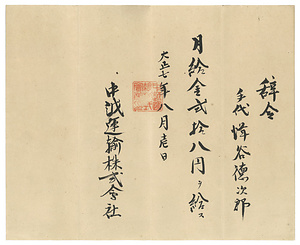 辞令
手代 漆谷徳次郎
月給金貳拾八円ヲ給ス
大正七年八月壱日
中越運輸株式會社